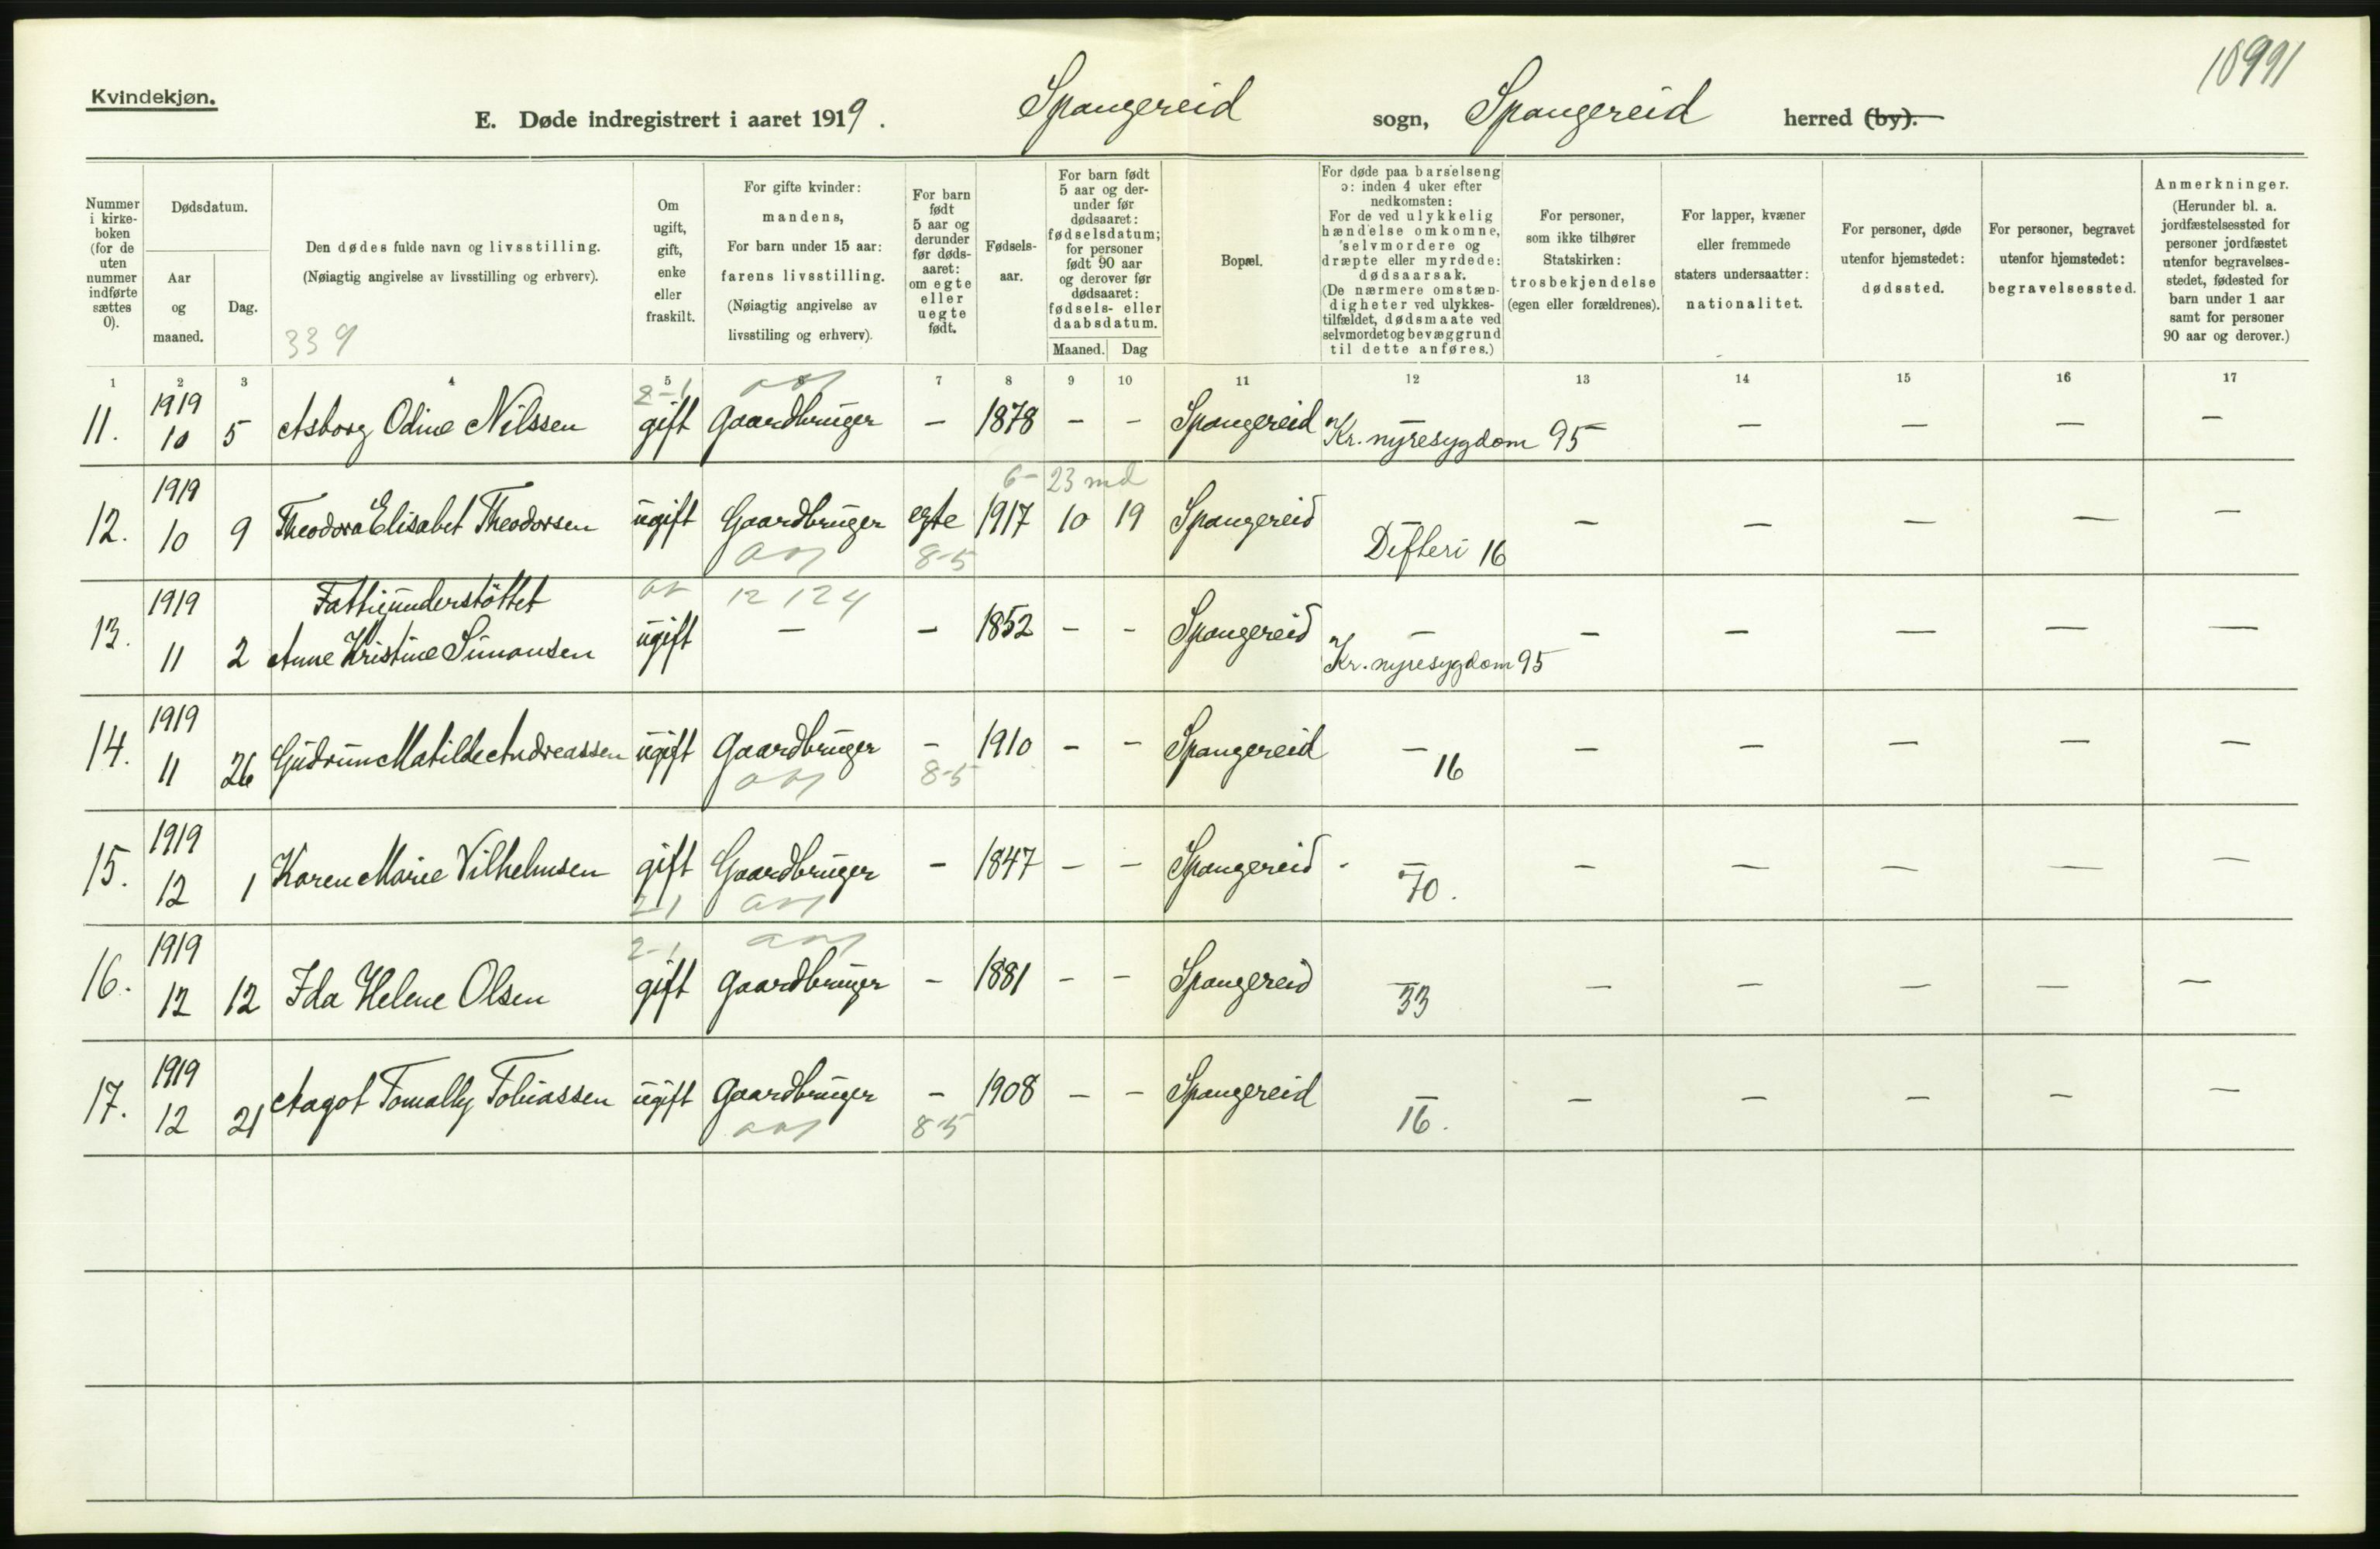 10991
Kvindekjøn.
E. Døde indregistrert i aaret 1919. Spangereid sogn, Spangereid herred (by).
Nummer i kirkeboken (for de uten nummer indførte sættes 0).
Dødsdatum.
Aar og maaned.
Dag.
Den dødes fulde navn og livsstilling.
(Nøiagtig angivelse av livsstilling og erhverv).
339
Om ugift, gift, enke eller fraskilt.
For gifte kvinder: mandens,
For barn under 15 aar: farens livsstilling.
(Nøiagtig angivelse av livsstiling og erhverv).
For barn født 5 aar og derunder før dødsaaret: om egte eller uegte født.
Fødselsaar.
For barn født 5 aar og derunder før dødsaaret: fødselsdatum; for personer født 90 aar og derover før dødsaaret: fødsels- eller daabsdatum.
Maaned. Dag
Bopæl.
For døde paa barselseng ɔ: inden 4 uker efter nedkomsten:
For de ved ulykkelig hændelse omkomne, selvmordere og dræpte eller myrdede: dødsaarsak.
(De nærmere omstændigheter ved ulykkestilfældet, dødsmaate ved selvmordet og bevæggrund til dette anføres.)
For personer, som ikke tilhører Statskirken: trosbekjendelse (egen eller forældrenes).
For lapper, kvæner eller fremmede staters undersaatter: nationalitet.
For personer, døde utenfor hjemstedet: dødssted.
For personer, begravet utenfor hjemstedet: begravelsessted.
Anmerkninger.
(Herunder bl. a. jordfæstelsessted for personer jordfæstet utenfor begravelsesstedet, fødested for barn under 1 aar samt for personer 90 aar og derover.)
1 2 3 4 5 6 7 8 9 10 11 12 13 14 15 16 17
2-1
11. 1919 10 5 Asborg Odine Nilssen gift Gaardbruger - 1878 - - Spangereid - Kr. nyresygdom 95 - - - -
6- 23 md
12. 1919 10 9 Theodora Elisabet Theodorsen ugift Gaardbruger egte 1917 10 19 Spangereid - Difteri 16 - - - - -
8-5
12 124
13. 1919 11 2 Fattigunderstöttet Anne Kristine Simonsen ugift - - 1852 - - Spangereid - Kr. nyresygdom 95 - - - - -
14. 1919 11 26 Gudrun Matilde Andreassen ugift Gaardbruger - 1910 - - Spangereid - 16 - - - - -
8-5
15. 1919 12 1 Karen Marie Vilhelmsen gift Gaardbruger - 1847 - - Spangereid - 70. - - - - -
2-1
2-1
16. 1919 12 12 Ida Helene Olsen gift Gaardbruger - 1881 - - Spangereid - 33 - - - - -
17. 1919 12 21 Aagot Tomally Tobiassen ugift Gaardbruger - 1908 - - Spangereid - 16. - - - - -
8-5